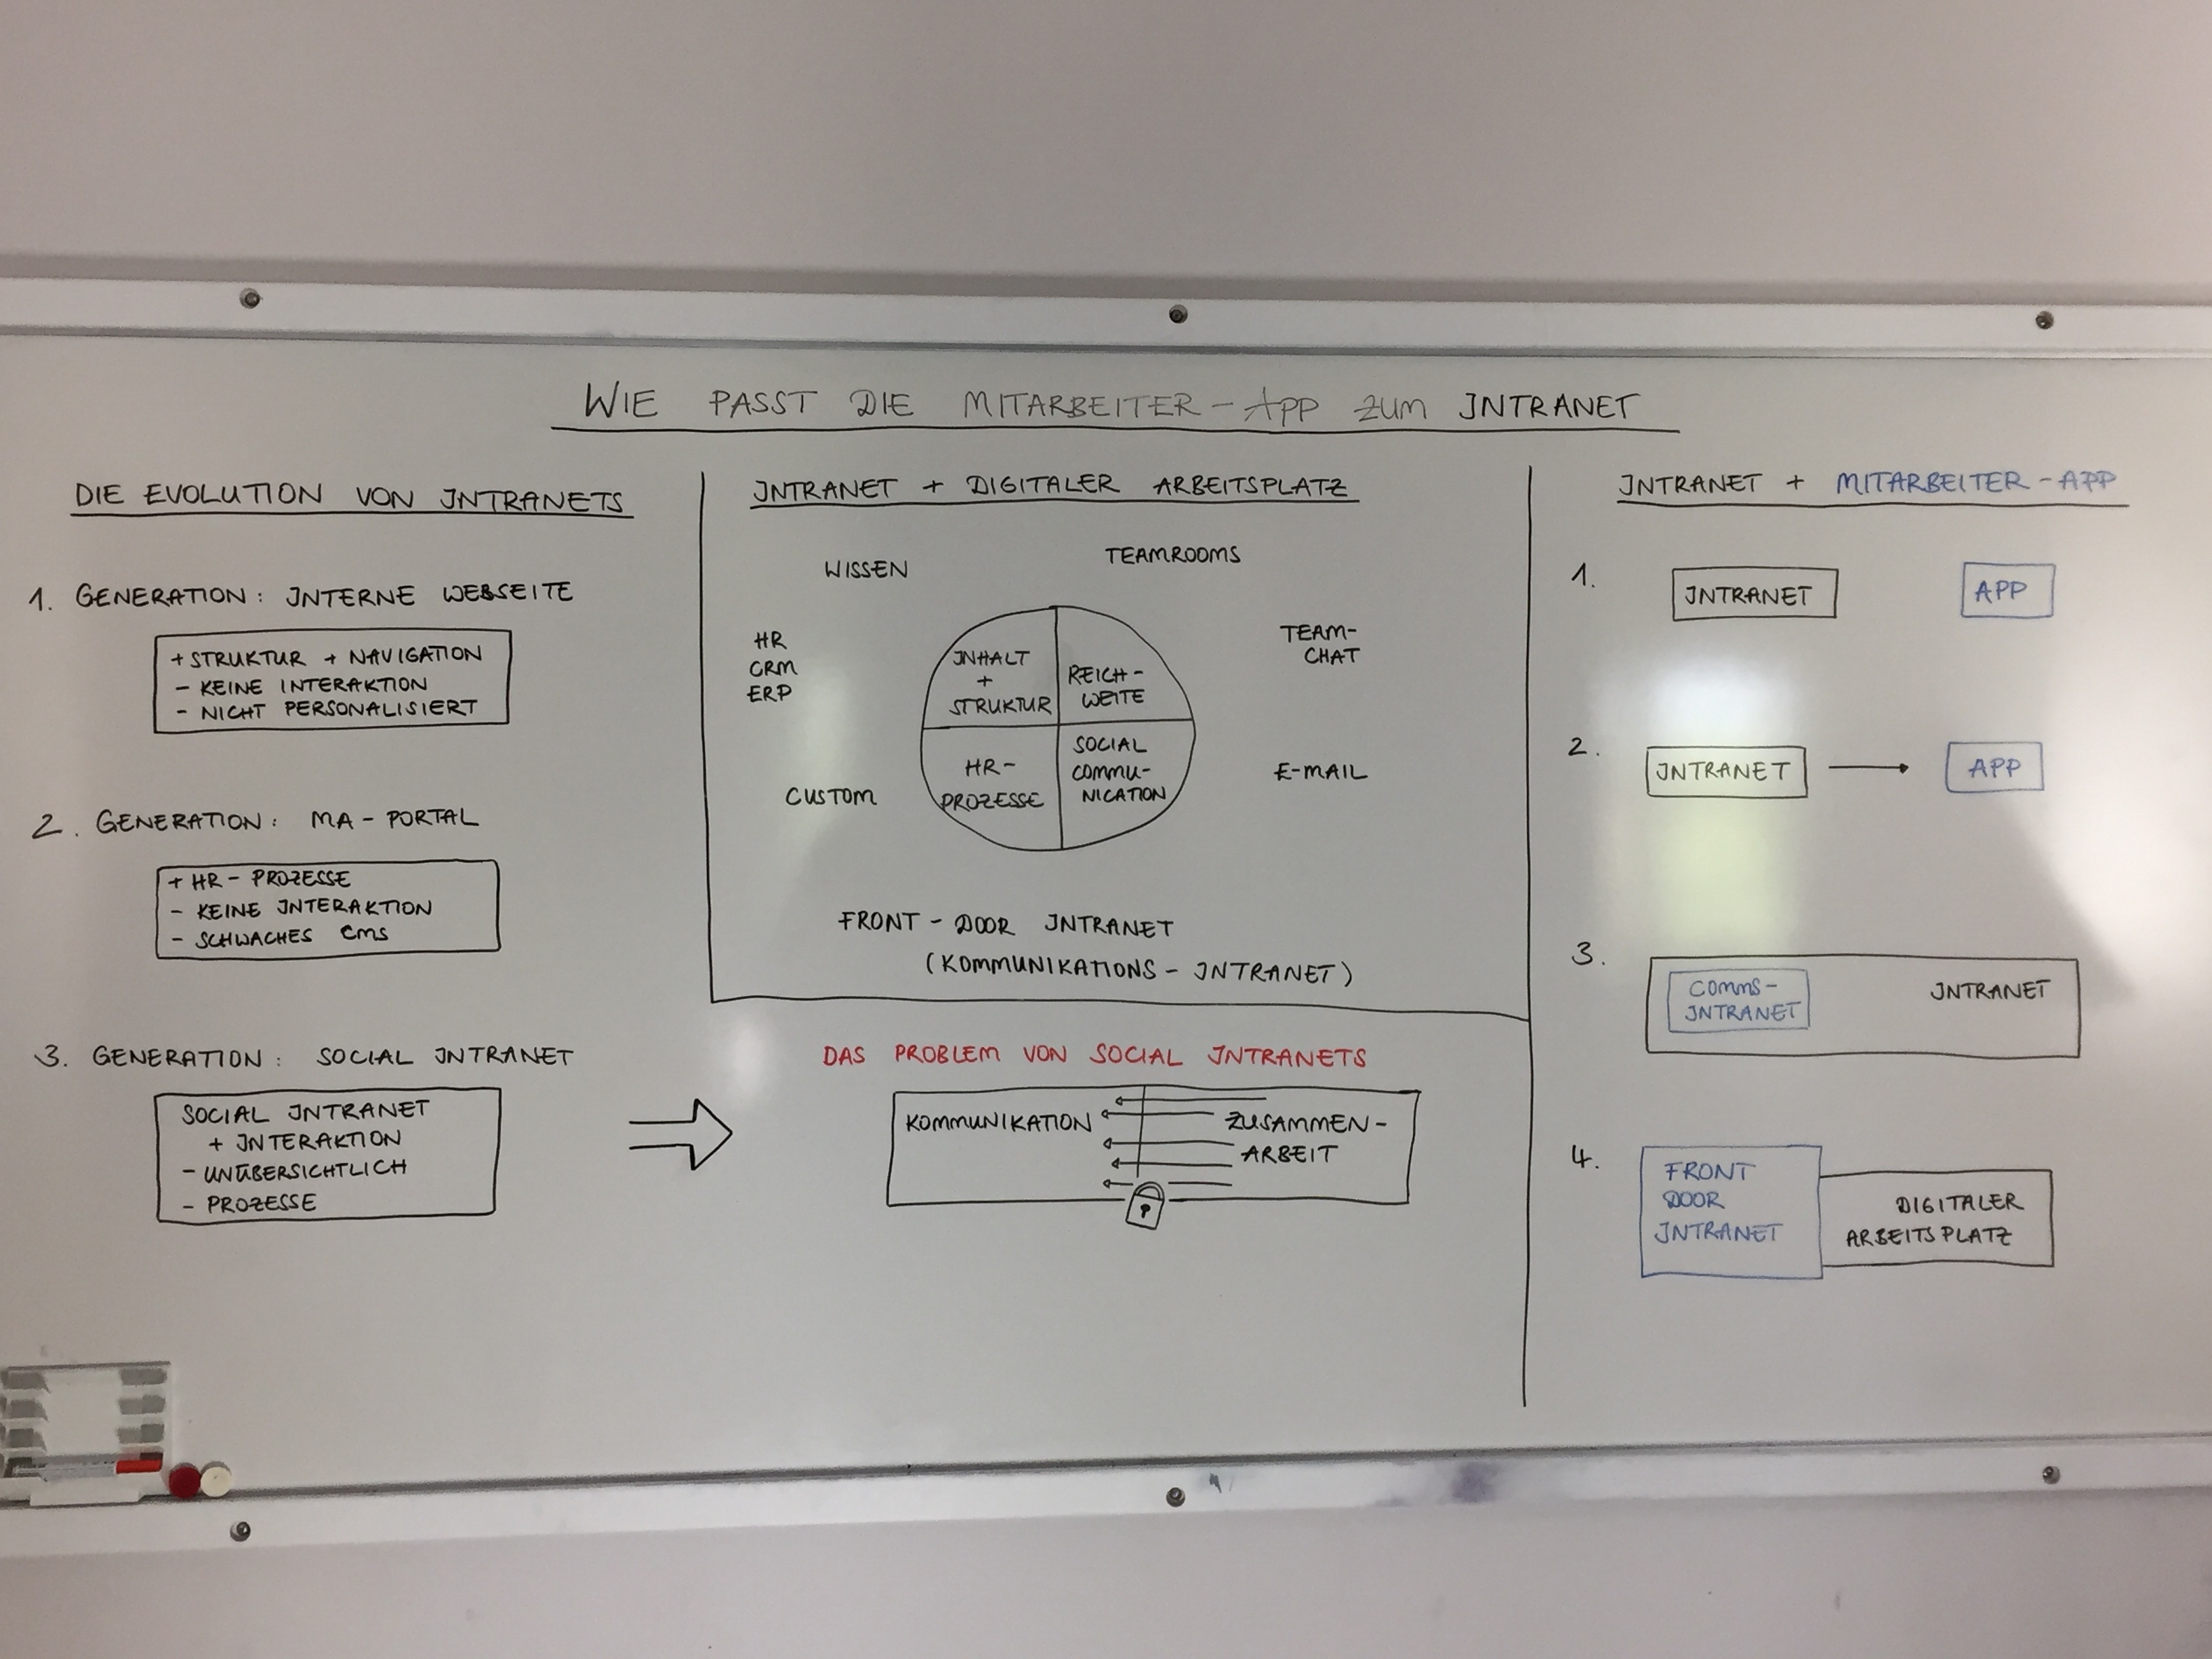 WIE PASST DIE MITARBEITER-APP ZUM INTRANET
DIE EVOLUTION VON INTRANETS
1. GENERATION: INTERNE WEBSEITE
+ STRUKTUR + NAVIGATION
- KEINE INTERAKTION
- NICHT PERSONALISIERT
2. GENERATION: MA-PORTAL
+ HR-PROZESSE
- KEINE INTERAKTION
- SCHWACHES CMS
3. GENERATION: SOCIAL INTRANET
SOCIAL INTRANET
+ INTERAKTION
- UNÜBERSICHTLICH
- PROZESSE
INTRANET + DIGITALER ARBEITSPLATZ
WISSEN
TEAMROOMS
HR
CRM
ERP
TEAM-
CHAT
INHALT
+
STRUKTUR
REICH-
WEITE
HR-
PROZESSE
SOCIAL
COMMU-
NICATION
CUSTOM
E-MAIL
FRONT-DOOR INTRANET
(KOMMUNIKATIONS-INTRANET)
DAS PROBLEM VON SOCIAL INTRANETS
KOMMUNIKATION
ZUSAMMEN-
ARBEIT
INTRANET + MITARBEITER-APP
1. INTRANET APP
2. INTRANET APP
3.
COMMS-
INTRANET
INTRANET
4.
FRONT
DOOR
INTRANET
DIGITALER
ARBEITSPLATZ